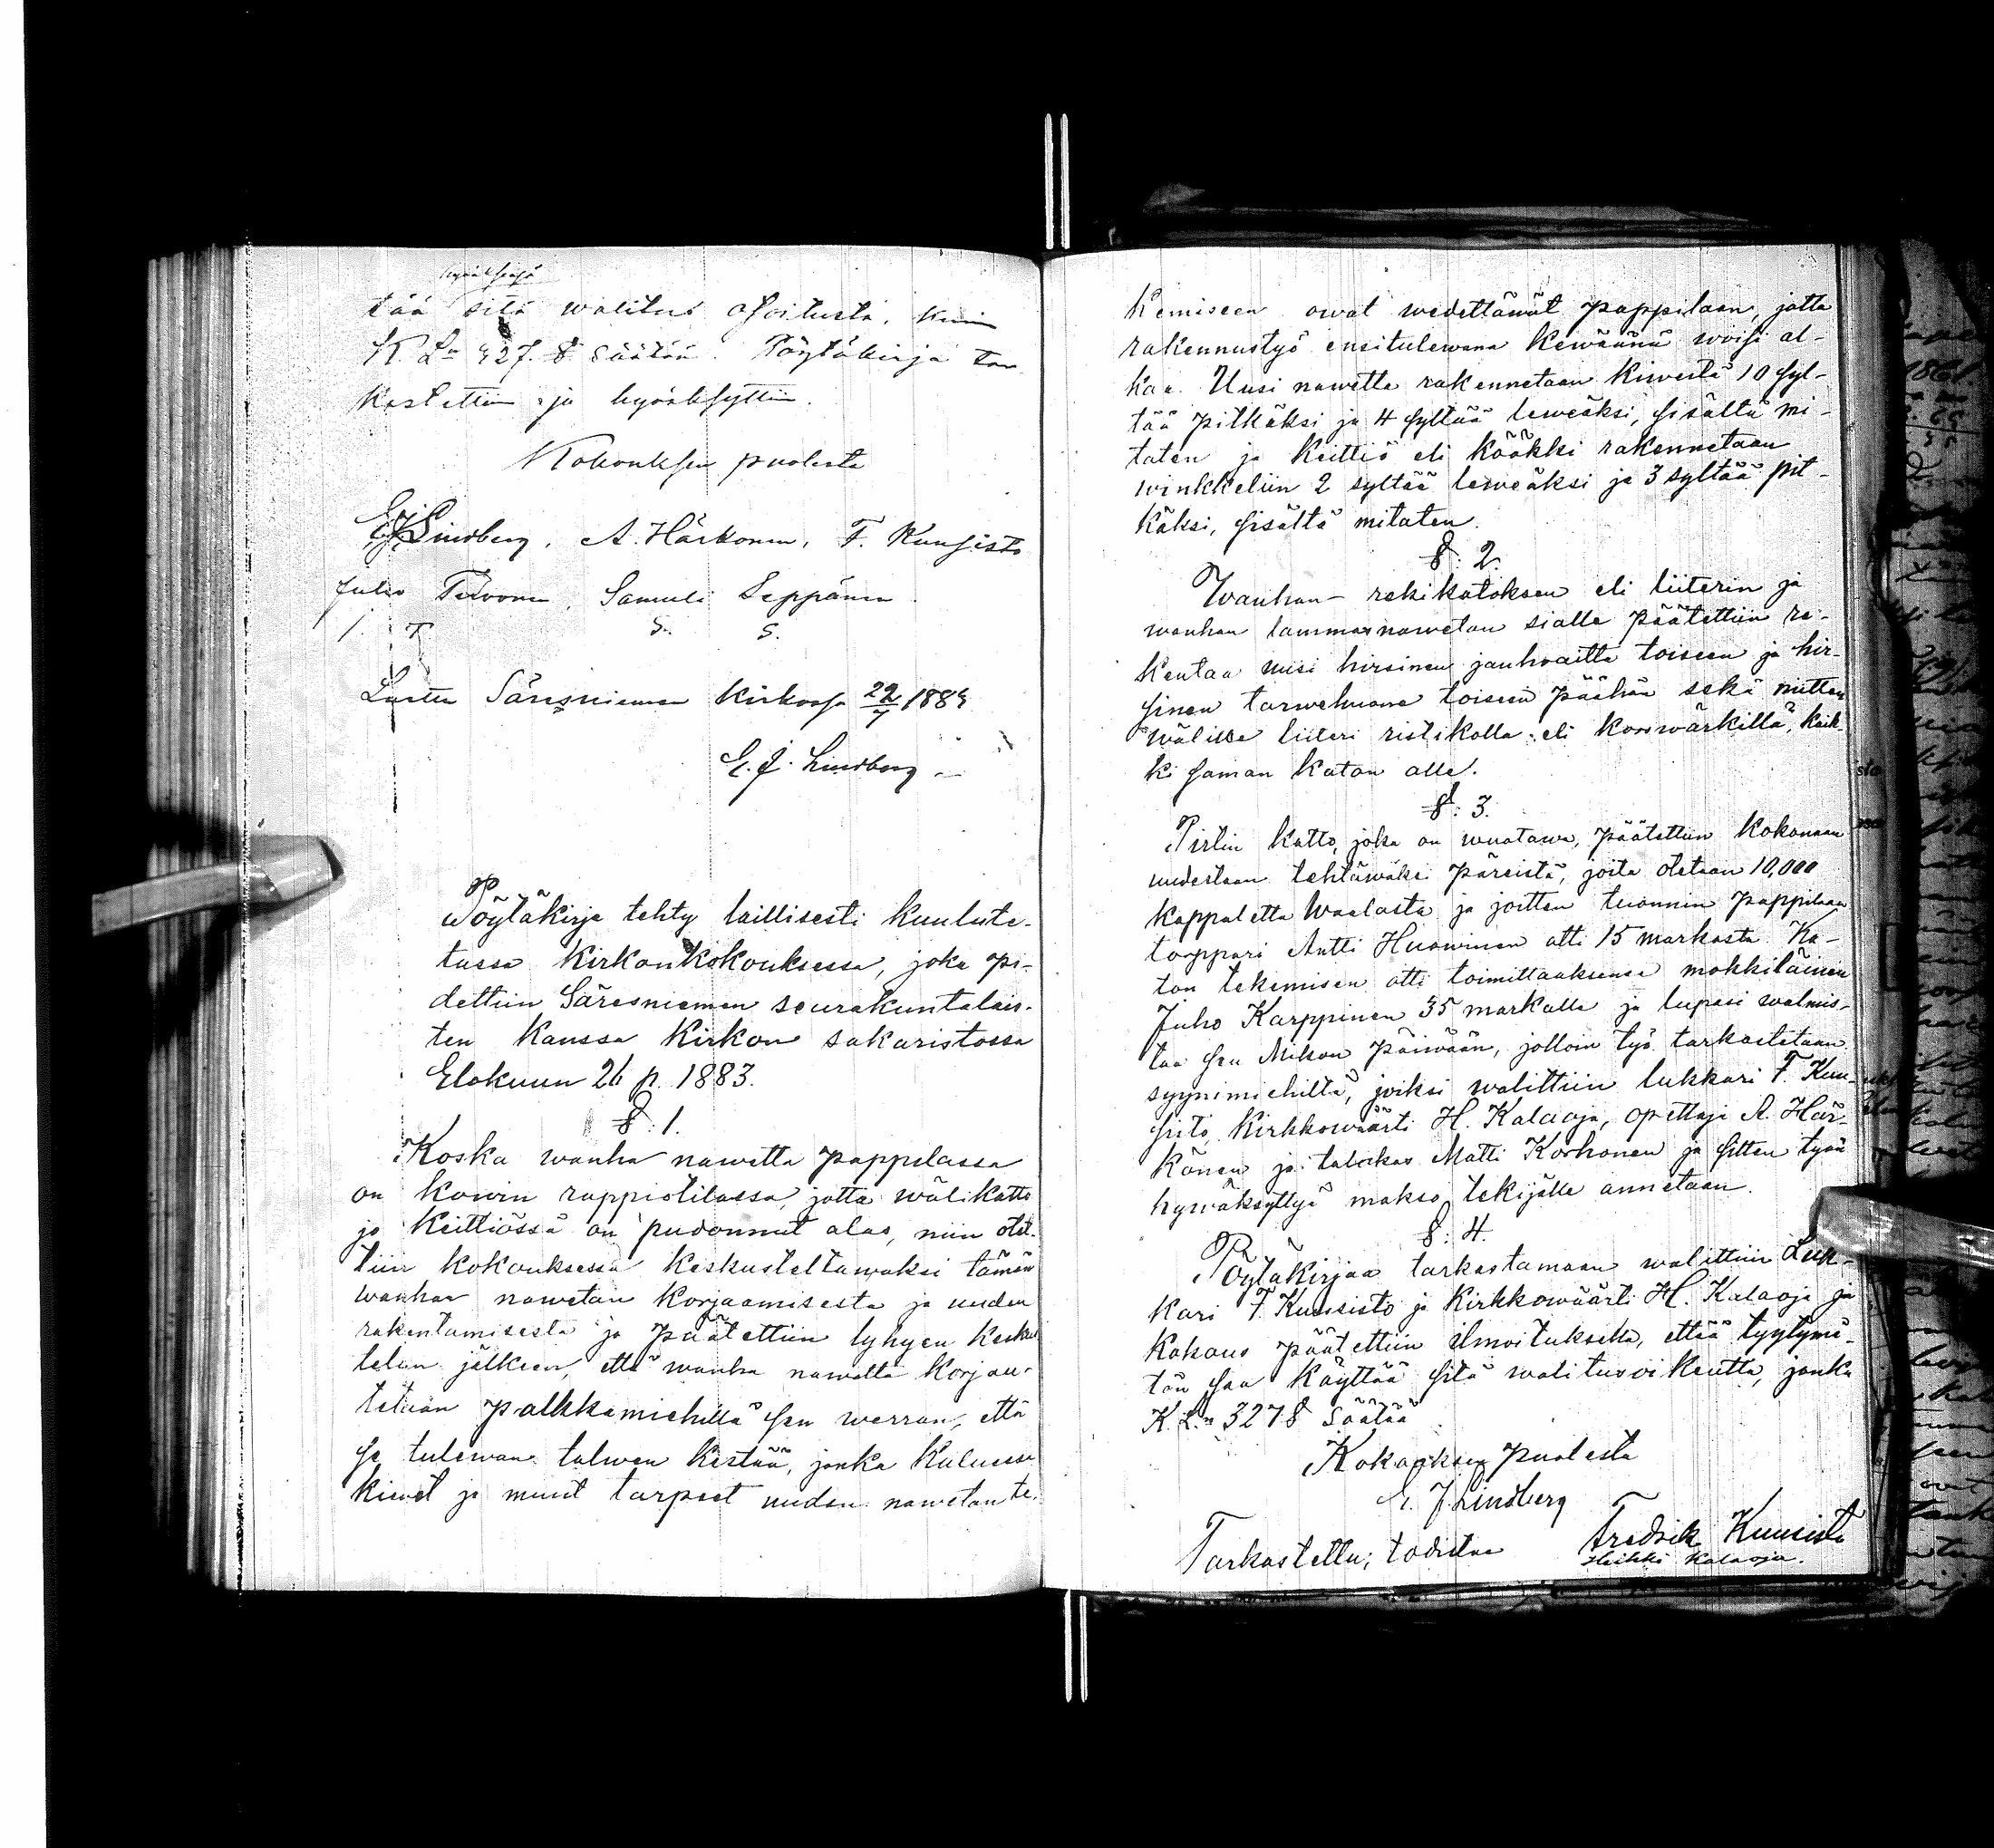 hywäksensä
tää sitä walitus osoitusta, kuin
K. L:n 327 § säätää. Pöytäkirja tar-
kastettiin ja hywäksyttiin.
Kokouksen puolesta
E. J. Lindberg, A. Härkönen, F. Kuusisto
Juho Tervonen, Samuli Seppänen
J. T. S. S.
Luettu Säresniemen kirkossa 22/7 1883
E. J. Lindberg
Pöytäkirja tehty laillisesti kuulute-
tussa kirkonkokouksessa, joka pi-
dettiin Säresniemen seurakuntalais-
ten kanssa Kirkon sakaristossa
Elokuun 26 p. 1883.
§: 1.
Koska wanha nawetta pappilassa
on kowin rappiotilassa, jotta wälikatto
jo keittiössä on pudonnut alas, niin otet-
tiin kokouksessa keskusteltawaksi tämän
wanhan nawetan korjaamisesta ja uuden
rakentamisesta ja päätettiin lyhyen keskus
telun jälkeen, että wanha nawetta korjau-
tetaan palkkamiehillä sen werran, että
se tulewan talwen kestää, jonka kuluessa
kiwet ja muut tarpeet uuden nawetan te-
kemiseen owat wedettäwät pappilaan, jotta
rakennustyö ensitulewana kewäänä woisi al-
kaa. Uusi nawetta rakennetaan kiwestä 10 syl-
tää pitkäksi ja 4 syltää leweäksi, sisältä mi-
taten ja keittiö eli köökki rakennetaan
winkkeliin 2 syltää leweäksi ja 3 syltää pit-
käksi, sisältä mitaten.
§: 2.
Wanhan rekikatoksen eli liiterin ja
wanhan lammasnawetan sialle päätettiin ra-
kentaa uusi hirsinen jauhoaitta toiseen ja hir-
sinen tarwehuone toiseen päähän sekä niitten
wälille liiteri ristikolla eli korswärkillä, kaik-
ki saman katon alle.
§: 3.
Pirtin katto, joka on wuotawa, päätettiin kokonaan
uudestaan tehtäwäksi päreistä, joita otetaan 10,000
kappaletta Waalasta ja joitten tuonnin pappilaan
torppari Antti Huowinen otti 15 markasta. Ka-
ton tekemisen otti toimittaaksensa mökkiläinen
Juho Karppinen 35 markalla ja lupasi walmis-
taa sen Mikon päiwään, jolloin työ tarkastetaan
syynimiehiltä, joiksi walittiin lukkari F. Kuu-
sisto, Kirkkowäärti H. Kalaoja, opettaja A. Här-
könen ja talokas Matti Korhonen ja sitten työn
hywäksyttyä makso tekijälle annetaan.
§: 4.
Pöytäkirjaa tarkastamaan walittiin Luk-
kari F. Kuusisto ja Kirkkowäärti H. Kalaoja ja
Kokous päätettiin ilmoituksella, että tyytymä-
tön saa käyttää sitä walitusoikeutta, jonka
K. L:n 327 § säätää
Kokouksen puolesta
E. J. Lindberg
Tarkastettu; todistaa Fredrik Kuusisto
Heikki Kalaoja.